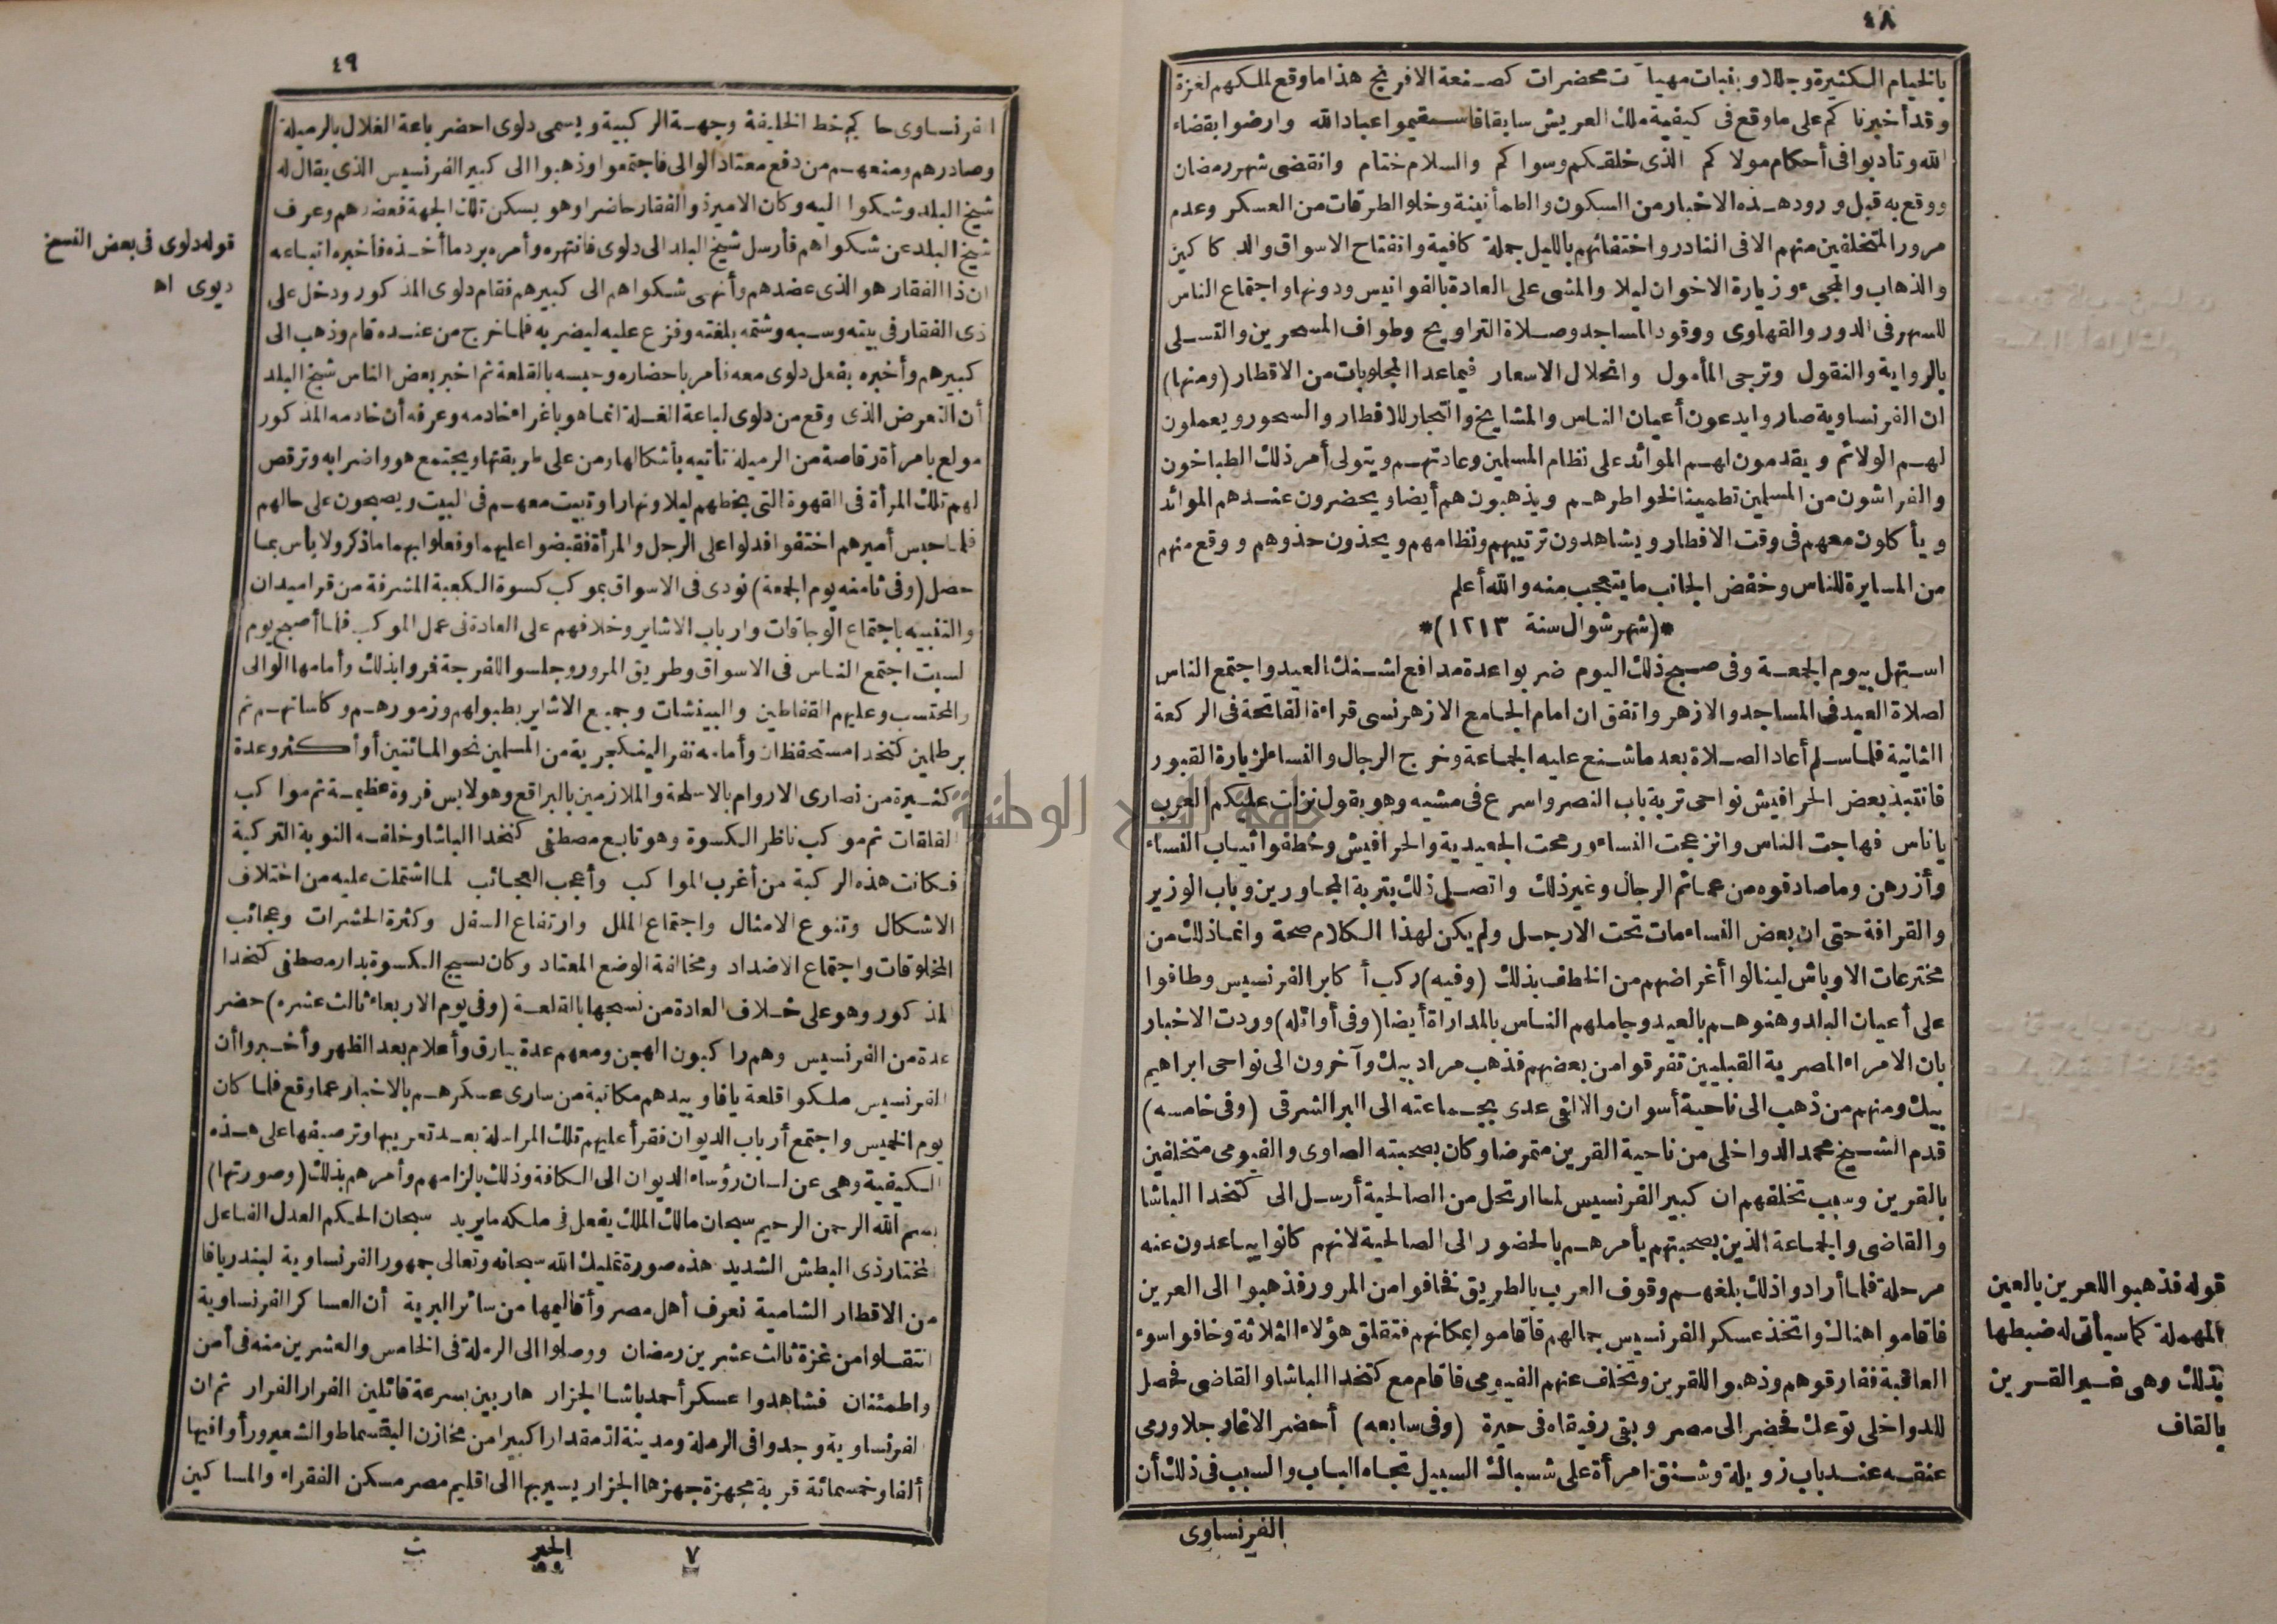 ٤٨
بالخيام الكثيرة وجللا وبنبات مهيات محضرات كصنعة الافرنج هذا ما وقع لملكهم لغزة
وقد أخبرناكم على ما وقع فى كيفية ملك العريش سابقا فاستقيموا عباد الله وارضوا بقضاء
الله وتأدبوا فى أحكام مولاكم الذى خلقكم وسواكم والسلام ختام وانقضى شهر رمضان
ووقع به قبل ورود هذه الاخبار من السكون والطمأنينة وخلو الطرقات من العسكر وعدم
مرور المتخلفين منهم الا فى النادر واختفائهم بالليل جملة كافية وانفتاح الاسواق والدكاكين
والذهاب والمجىء وزيارة الاخوان ليلا والمشى على العادة بالفوانيس ودونها واجتماع الناس
للسهر فى الدور والقهاوى ووقود المساجد وصلاة التراويح وطواف المسحرين والتسلى
بالرواية والنقول وترجى المأمول وانحلال الاسعار فيما عدا المجلوبات من الاقطار (ومنها)
ان الفرنساوية صاروا يدعون أعيان الناس والمشايخ والتجار للافطار والسحور ويعملون
لهم الولائم ويقدمون لهم الموائد على نظام المسلمين وعادتهم ويتولى أمر ذلك الطباخون
والفراشون من المسلمين تطمينا لخواطرهم ويذهبون هم أيضا ويحضرون عندهم الموائد
ويأكلون معهم فى وقت الافطار ويشاهدون ترتيبهم ونظامهم ويحذون حذوهم ووقع منهم
من المسايرة للناس وخفض الجانب ما يتعجب منه والله أعلم
*(شهر شوال سنة ١٢١٣)*
استهل بيوم الجمعة وفى صبح ذلك اليوم ضربوا عدة مدافع لشنك العيد واجتمع الناس
لصلاة العيد فى المساجد والازهر واتفق ان امام الجامع الازهر نسى قراءة الفاتحة فى الركعة
الثانية فلما سلم أعاد الصلاة بعد ما شنع عليه الجماعة وخرج الرجال والنساء لزيارة القبور
فانتبذ بعض الحرافيش نواحى تربة باب النصر واسرع فى مشيه وهو يقول نزلت عليكم العرب
ياناس فهاجت الناس وانزعجت النساء ورمحت الجعيدية والحرافيش وخطفوا ثياب النساء
وأزرهن وما صادفوه من عمائم الرجال وغير ذلك واتصل ذلك بتربة المجاورين وباب الوزير
والقرافة حتى ان بعض النساء مات تحت الارجل ولم يكن لهذا الكلام صحة وانما ذلك من
مخترعات الاوباش لينالوا أغراضهم من الخطف بذلك (وفيه) ركب أكابر الفرنسيس وطافوا
على أعيان البلد وهنوهم بالعيد وجاملهم الناس بالمداراة أيضا (وفى أوائله) وردت الاخبار
بان الامراء المصرية القبليين تفرقوا من بعضهم فذهب مراد بيك وآخرون الى نواحى ابراهيم
بيك ومنهم من ذهب الى ناحية أسوان والالفى عدى بجماعته الى البر الشرقى (وفى خامسه)
قدم الشيخ محمد الدواخلى من ناحية القرين متمرضا وكان بصحبته الصاوى والفيومى متخلفين
بالقرين وسبب تخلفهم ان كبير الفرنسيس لما ارتحل من الصالحية أرسل الى كتخدا الباشا
والقاضى والجماعة الذين بصحبتهم يأمرهم بالحضور الى الصالحية لانهم كانوا يباعدون عنه
مرحلة فلما أرادوا ذلك بلغهم وقوف العرب بالطريق فخافوا من المرور فذهبوا الى العرين
فاقاموا هناك واتخذ عسكر الفرنسيس جمالهم فاقاموا بمكانهم فتقلق هؤلاء الثلاثة وخافوا سوء
العاقبة ففارقوهم وذهبوا للقرين وتخلف عنهم الفيومى فاقام مع كتخدا الباشا والقاضى فحصل
للدواخلى توعك فحضر الى مصر وبقى رفيقاه فى حيرة (وفى سابعه) أحضر الاغا رجلا ورمى
عنقه عند باب زويلة وشنق امرأة على شباك السبيل تجاه الباب والسبب فى ذلك أن
الفرنساوى
قوله فذهبوا للعرين بالعين
المهملة كما سيأتى له ضبطها
بذلك وهى غير القرين
بالقاف
٤٩
الفرنساوى حاكم خط الخليفة وجهة الركبية ويسمى دلوى احضر باعة الغلال بالرميلة
وصادرهم ومنعهم من دفع معتاد الوالى فاجتمعوا وذهبوا الى كبير الفرنسيس الذى يقال له
شيخ البلد وشكوا اليه وكان الامير ذو الفقار حاضرا وهو يسكن تلك الجهة فعضدهم وعرف
شيخ البلد عن شكواهم فأرسل شيخ البلد الى دلوى فانتهره وأمره برد ما أخذه فأخبره اتباعه
ان ذا الفقار هو الذى عضدهم وأنهى شكواهم الى كبيرهم فقام دلوى المذكور ودخل على
ذى الفقار فى بيته وسبه وشتمه بلغته وفزع عليه ليضربه فلما خرج من عنده قام وذهب الى
كبيرهم وأخبره بفعل دلوى معه فأمر باحضاره وحبسه بالقلعة ثم اخبر بعض الناس شيخ البلد
أن التعرض الذى وقع من دلوى لباعة الغلة انما هو باغراء خادمه وعرفه أن خادمه المذكور
مولع بامرأة رقاصة من الرميلة تأتيه بأشكالها ومن على طريقتها ويجتمع هو واضرابه وترقص
لهم تلك المرأة فى القهوة التى بخطهم ليلا ونهارا وتبيت معهم فى البيت ويصبحون على حالهم
فلما حبس أميرهم اختفوا فدلوا على الرجل والمرأة فقبضوا عليهما وفعلوا بهما ما ذكر ولا بأس بما
حصل (وفى ثامنه يوم الجمعة) نودى فى الاسواق بموكب كسوة الكعبة المشرفة من قراميدان
والتنبيه باجتماع الوجاقات وارباب الاشاير وخلافهم على العادة فى عمل الموكب فلما أصبح يوم
السبت اجتمع الناس فى الاسواق وطريق المرور وجلسوا للفرجة فمروا بذلك وأمامها الوالى
والمحتسب وعليهم القفاطين والبينشات وجميع الاشاير بطبولهم وزمورهم وكاساتهم ثم
برطلمين كتخدا مستحفظان وأمامه نفر الينكجرية من المسلمين نحو المائتين أو أكثر وعدة
كثيرة من نصارى الاروام بالاسلحة والملازمين بالبراقع وهو لابس فروة عظيمة ثم مواكب
القلقات ثم موكب ناظر الكسوة وهو تابع مصطفى كتخدا الباشا وخلفه النوبة التركية
فكانت هذه الركبة من أغرب المواكب وأعجب العجائب لما اشتملت عليه من اختلاف
الاشكال وتنوع الامثال واجتماع الملل وارتفاع السفل وكثرة الحشرات وعجائب
المخلوقات واجتماع الاضداد ومخالفة الوضع المعتاد وكان نسيج الكسوة بدار مصطفى كتخدا
المذكور وهو على خلاف العادة من نسجها بالقلعة (وفى يوم الاربعاء ثالث عشره) حضر
عدة من الفرنسيس وهم راكبون الهجن ومعهم عدة بيارق وأعلام بعد الظهر وأخبروا أن
الفرنسيس ملكوا قلعة يافا وبيدهم مكاتبة من سارى عسكرهم بالاخبار عما وقع فلما كان
يوم الخميس واجتمع أرباب الديوان فقرأ عليهم تلك المراسلة بعد تعريبها وترصيفها على هذه
الكيفية وهى عن لسان رؤساء الديوان الى الكافة وذلك بالزامهم وأمرهم بذلك (وصورتها)
بسم الله الرحمن الرحيم سبحان مالك الملك يفعل فى ملكه ما يريد سبحان الحكم العدل الفاعل
المختار ذى البطش الشديد هذه صورة تمليك الله سبحانه وتعالى جمهور الفرنساوية لبندر يافا
من الاقطار الشامية نعرف أهل مصر وأقاليمها من سائر البرية أن العساكر الفرنساوية
انتقلوا من غزة ثالث عشرين رمضان ووصلوا الى الرملة فى الخامس والعشرين منه فى أمن
واطمئنان فشاهدوا عسكر أحمد باشا الجزار هاربين بسرعة قائلين الفرار الفرار ثم ان
الفرنساوية وجدوا فى الرملة ومدينة لد مقدارا كبيرا من مخازن البقسماط والشعير ورأوا فيها
ألفا وخمسمائة قربة مجهزة جهزها الجزار يسير بها الى اقليم مصر مسكن الفقراء والمساكين
٧
الجبر
ث
قوله دلوى فى بعض النسخ
ديوى اه
جامعة النجاح الوطنية